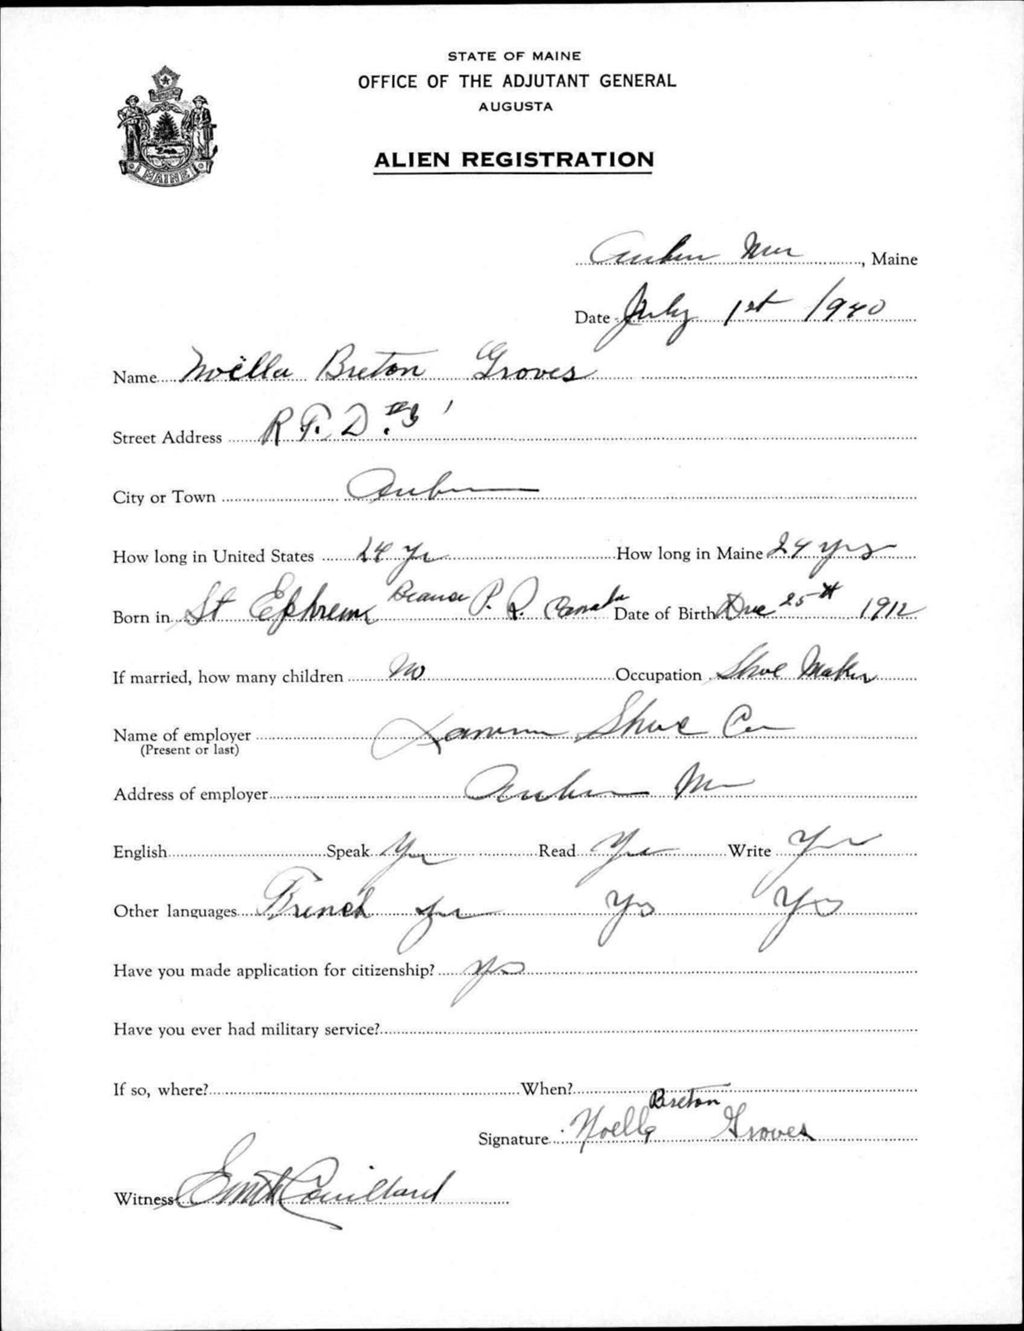 STATE OF MAINE
OFFICE OF THE ADJUTANT GENERAL
AUGUSTA
ALIEN REGISTRATION
MAINE
Auburn Me, Maine
Date July 1st 1940
Name Noëlla Breton Groves
Street Address R F. D. #3
City or Town Auburn
How long in United States 24 Yr How long in Maine 24 yrs
Born in St Ephrem Beauce P. Q. Canada Date of Birth Dec 25th 1912
If married, how many children No Occupation Shoe Maker
Name of employer Shoe Co
(Present or last)
Address of employer Auburn Me
English Speak Yes Read Yes Write Yes
Other languages French Yes Yes Yes
Have you made application for citizenship? Yes
Have you ever had military service?
If so, where? When?
Breton
Signature Noella Groves
Witness Couillard